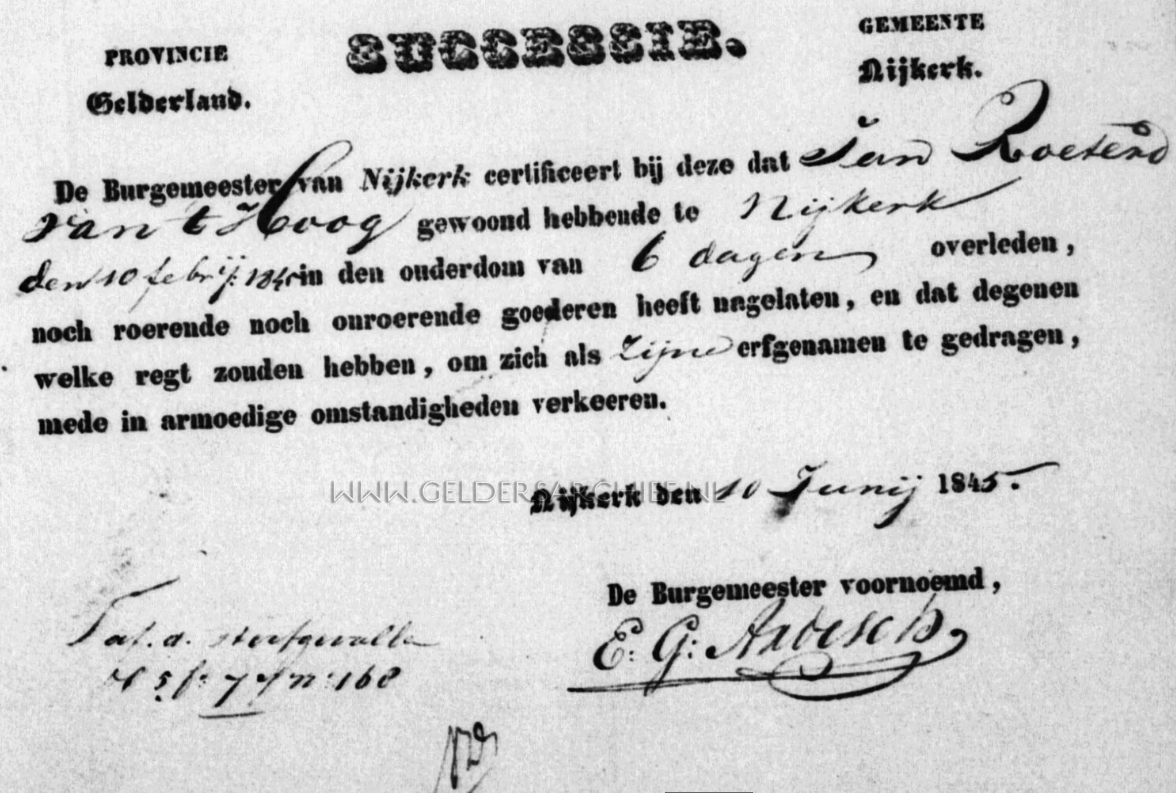 PROVINCIE
Gelderland.
SUCCESSIE.
GEMEENTE
Nijkerk.
De Burgemeester van Nijkerk certificeert bij deze dat Jan Roeterd
van t Hoog gewoond hebbende te Nijkerk
den 10 febrij: 1845 in den ouderdom van 6 dagen overleden,
noch roerende noch onroerende goederen heeft nagelaten, en dat degenen
welke regt zouden hebben, om zich als zijne erfgenamen te gedragen,
mede in armoedige omstandigheden verkeeren.
WWW.GELDERSARCHIEF.NL
Nijkerk den 10 Junij 1845.
De Burgemeester voornoemd,
E: G: Ardesch
Taf. a. sterfgevalle